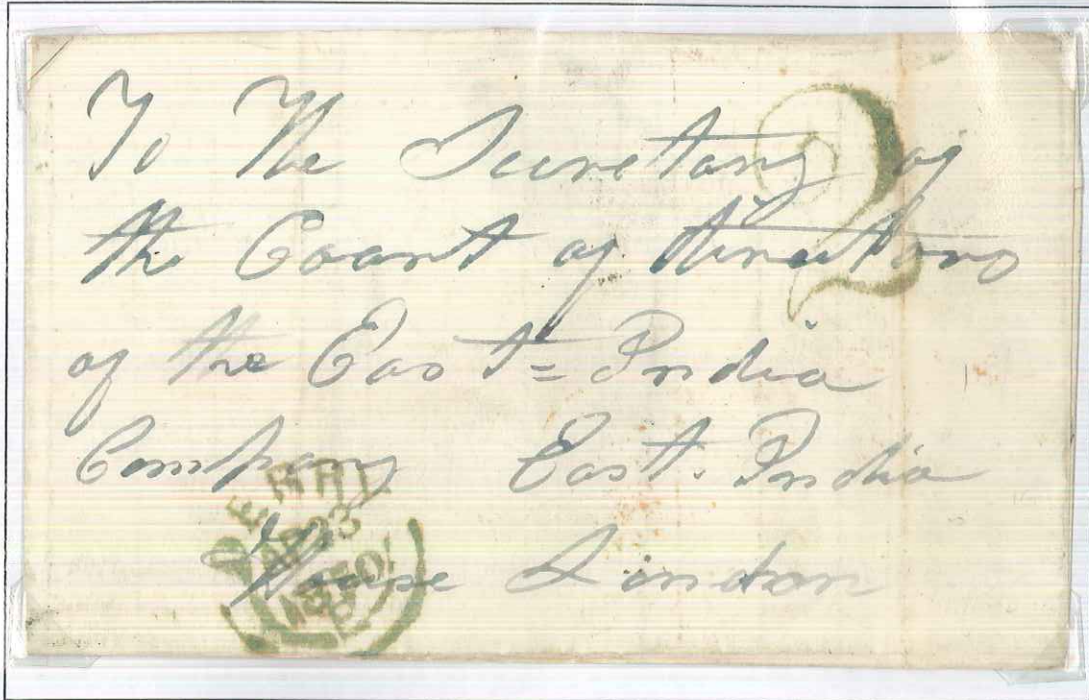 To The Secretary of
the Court of directors
of the East = India
Company East. India
House London
2
DERRY
AP 23
1850